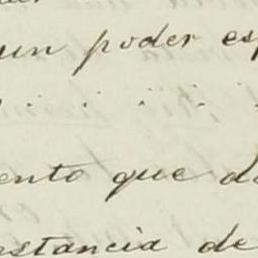 un poder es
. . . . .
ento que d
nstancia de